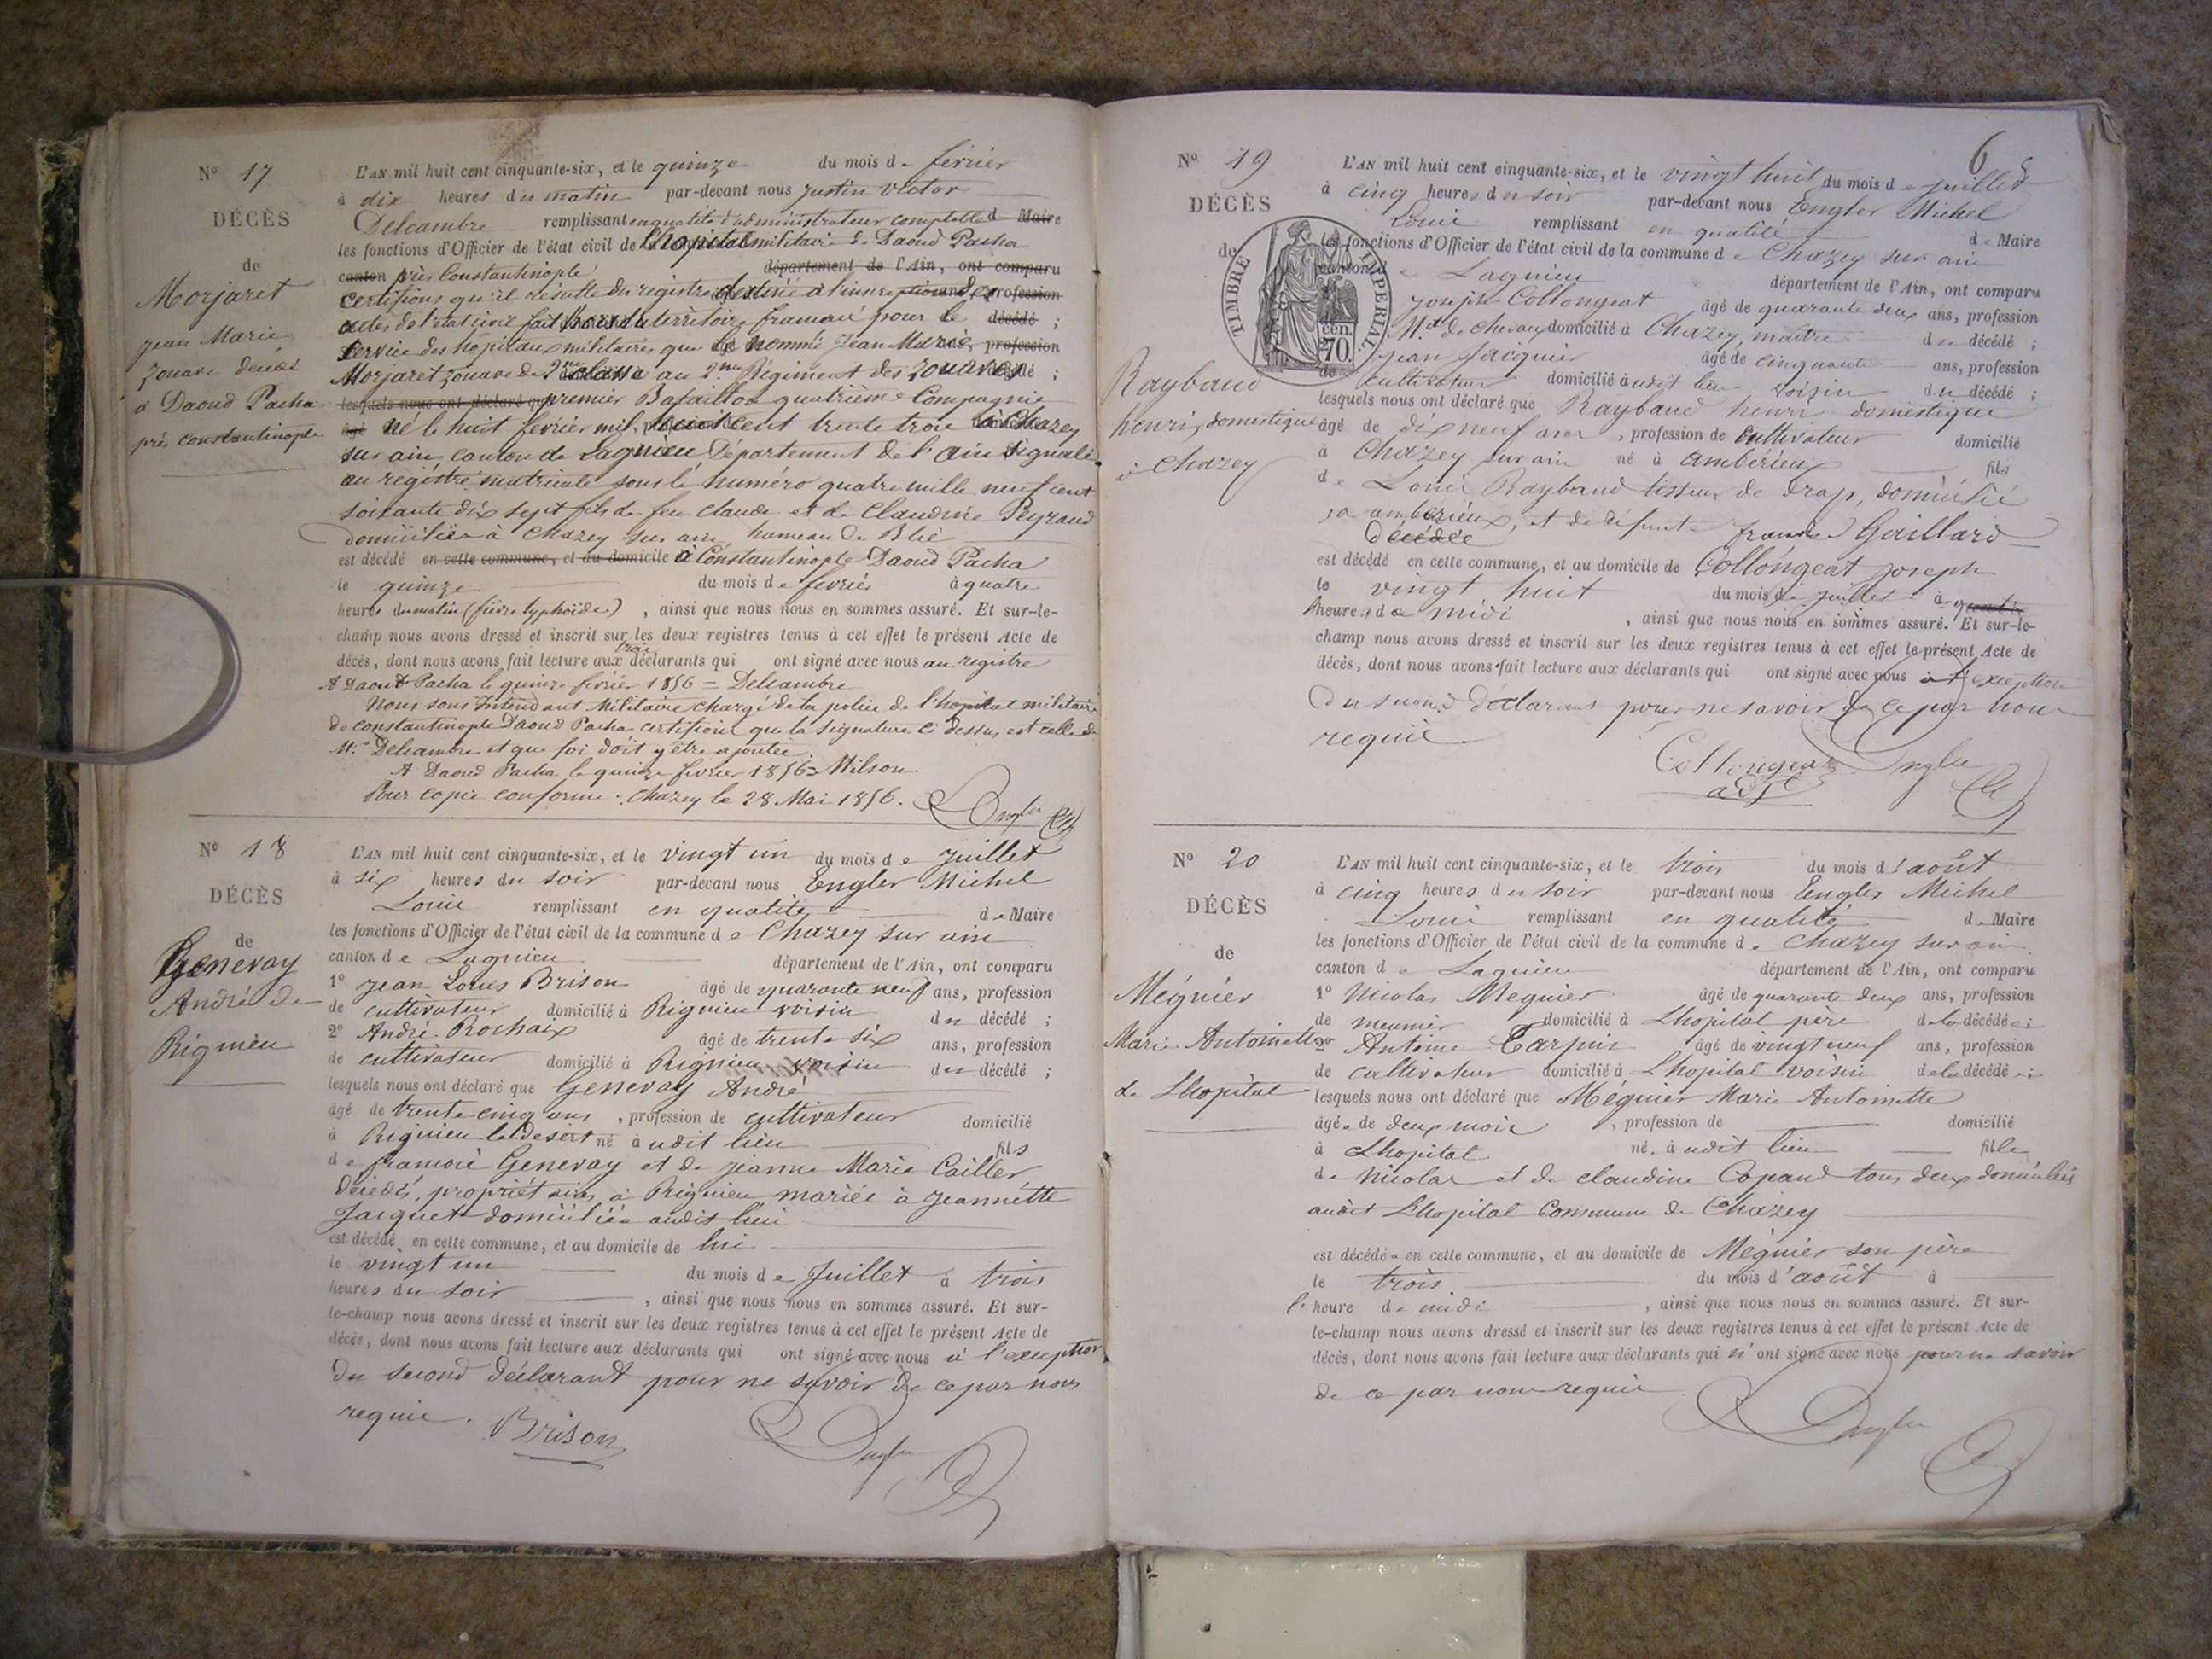 Nº 17
DÉCÈS
de
Morjaret
jean Marie
zouave décédé
à Daoud Pacha
près constantinople
L'AN mil huit cent cinquante-six, et le quinze du mois de février
à dix heures du matin par-devant nous justin victor
Delcambre remplissant en qualité d'administrateur comptable d Maire
les fonctions d'Officier de l'état civil de l'hopital militaire de Daoud Pacha
canton près Constantinople département de l'Ain, ont comparu
certifions qu'il résulte du registre destiné à l'inscription des profession
actes de l'état civil fait hors du territoire français pour le décédé ;
service des hôpitaux militaires que le nommé Jean Marie, profession
Morjaret zouave de 2me classe au 2me Régiment des zouaves
lesquels nous ont déclaré que premier Bataillon quatrième Compagnie
âgé né le huit février mil huit cent trente trois à Chazey
sur ain canton de Lagnieu Département de l'ain signalé
au régistre matricule sous le numéro quatre mille neuf cent
soixante dix sept fils de feu Claude et de Claudine Peyraud
domiciliés à Chazey sur ain, hameau de Blie
est décédé en cette commune, et au domicile à Constantinople Daoud Pacha
le quinze du mois de février à quatre
heures du matin (fièvre typhoïde) , ainsi que nous nous en sommes assuré. Et sur-le-
champ nous avons dressé et inscrit sur les deux registres tenus à cet effet le présent Acte de
décès, dont nous avons fait lecture aux trois déclarants qui ont signé avec nous au registre
A Daoud Pacha le quinze février 1856 = Delcambre
Nous sous Intendant Militaire chargé de la police de l'hopital militaire
de constantinople Daoud Pacha certifions que la signature ci dessus est celle de
Mr Delcambre et que foi doit y être ajoutée
A Daoud Pacha le quinze février 1856 = Wilson
Pour copie conforme. Chazey le 28 Mai 1856. Engler
Nº 18
DÉCÈS
de
Genevay
André de
Rignieu
L'AN mil huit cent cinquante-six, et le vingt un du mois de juillet
à six heures du soir par-devant nous Engler Michel
Louis remplissant en qualité de Maire
les fonctions d'Officier de l'état civil de la commune de Chazey sur ain
canton de Lagnieu département de l'Ain, ont comparu
1º jean Louis Brison âgé de quarante neuf ans, profession
de cultivateur domicilié à Rignieu voisin du décédé ;
2º André Rochaix âgé de trente six ans, profession
de cultivateur domicilié à Rignieu voisin du décédé ;
lesquels nous ont déclaré que Genevay André
âgé de trente cinq ans , profession de cultivateur domicilié
à Rignieu le desert né à udit lieu fils
de françois Genevay et de jeanne Marie Cailler
décédés, propriétaires à Rignieu mariée à jeannette
Jacquet domiciliée audit lieu
est décédé en cette commune, et au domicile de lui
le vingt un du mois de Juillet à trois
heures du soir , ainsi que nous nous en sommes assuré. Et sur-
le-champ nous avons dressé et inscrit sur les deux registres tenus à cet effet le présent Acte de
décès, dont nous avons fait lecture aux déclarants qui ont signé avec nous à l'exception
du second déclarant pour ne savoir de ce par nous
requis. Brison Engler
6
Nº 19
DÉCÈS
de
Raybaud
henri, domestique
à Chazey
TIMBRE IMPERIAL
70 cen.
L'AN mil huit cent cinquante-six, et le vingt huit du mois de juillet
à cinq heures du soir par-devant nous Engler Michel
Louis remplissant en qualité de Maire
les fonctions d'Officier de l'état civil de la commune de Chazey sur ain
canton de Lagnieu département de l'Ain, ont comparu
joseph Collongeat âgé de quarante deux ans, profession
Md de chevaux domicilié à Chazey, maitre du décédé ;
jean Jacquier âgé de cinquante ans, profession
de cultivateur domicilié à udit lieu voisin du décédé ;
lesquels nous ont déclaré que Raybaud henri domestique
âgé de dix neuf ans , profession de cultivateur domicilié
à Chazey sur ain né à ambérieux fils
de Louis Raybaud tisseur de drap, domicilié
à ambérieux, et de défunte françoise Gaillard
décédée
est décédé en cette commune, et au domicile de Collongeat joseph
le vingt huit du mois de juillet à
heure de midi , ainsi que nous nous en sommes assuré. Et sur-le-
champ nous avons dressé et inscrit sur les deux registres tenus à cet effet le présent Acte de
décès, dont nous avons fait lecture aux déclarants qui ont signé avec nous à l'exception
du second déclarant pour ne savoir de ce par nous
requis.
Collongeat Engler
adjt
Nº 20
DÉCÈS
de
Mégnier
Marie Antoinette
de Lhopital
L'AN mil huit cent cinquante-six, et le trois du mois d'août
à cinq heures du soir par-devant nous Engler Michel
Louis remplissant en qualité de Maire
les fonctions d'Officier de l'état civil de la commune de Chazey sur ain
canton de Lagnieu département de l'Ain, ont comparu
1º Nicolas Megnier âgé de quarante deux ans, profession
de meunier domicilié à Lhopital père de la décédée ;
2º Antoine Carpin âgé de vingt neuf ans, profession
de cultivateur domicilié à Lhopital voisin de la décédée ;
lesquels nous ont déclaré que Mégnier Marie Antoinette
âgée de deux mois , profession de domicilié
à Lhopital né à udit lieu fille
de Nicolas et de claudine Copand tous deux domiciliés
audit Lhopital Commune de Chazey
est décédée en cette commune, et au domicile de Mégnier son père
le trois du mois d'août à
l'heure de midi , ainsi que nous nous en sommes assuré. Et sur-
le-champ nous avons dressé et inscrit sur les deux registres tenus à cet effet le présent Acte de
décès, dont nous avons fait lecture aux déclarants qui n'ont signé avec nous pour ne savoir
de ce par nous requis Engler